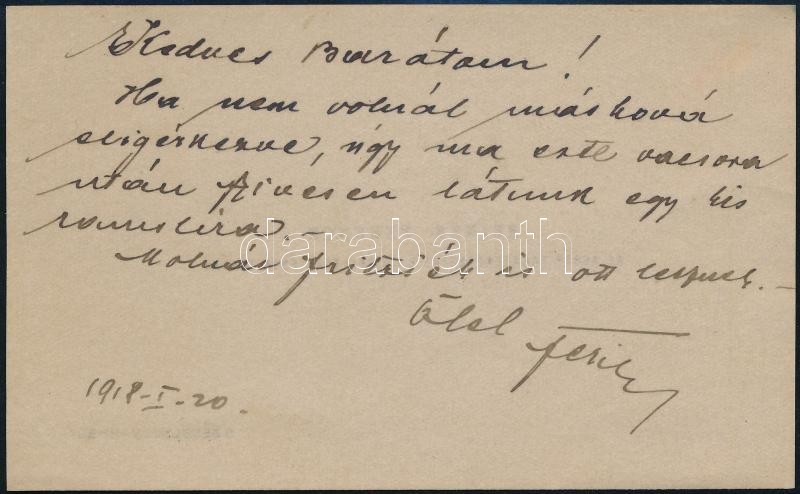 Kedves Barátom!
Ha nem volnál máshová
elígérkezve, úgy ma este vacsora
után szivesen látunk egy kis
ramslira.-
Molnár Friciék is ott lesznek.-
Ölel Feri
1918-I-20.
darabanth